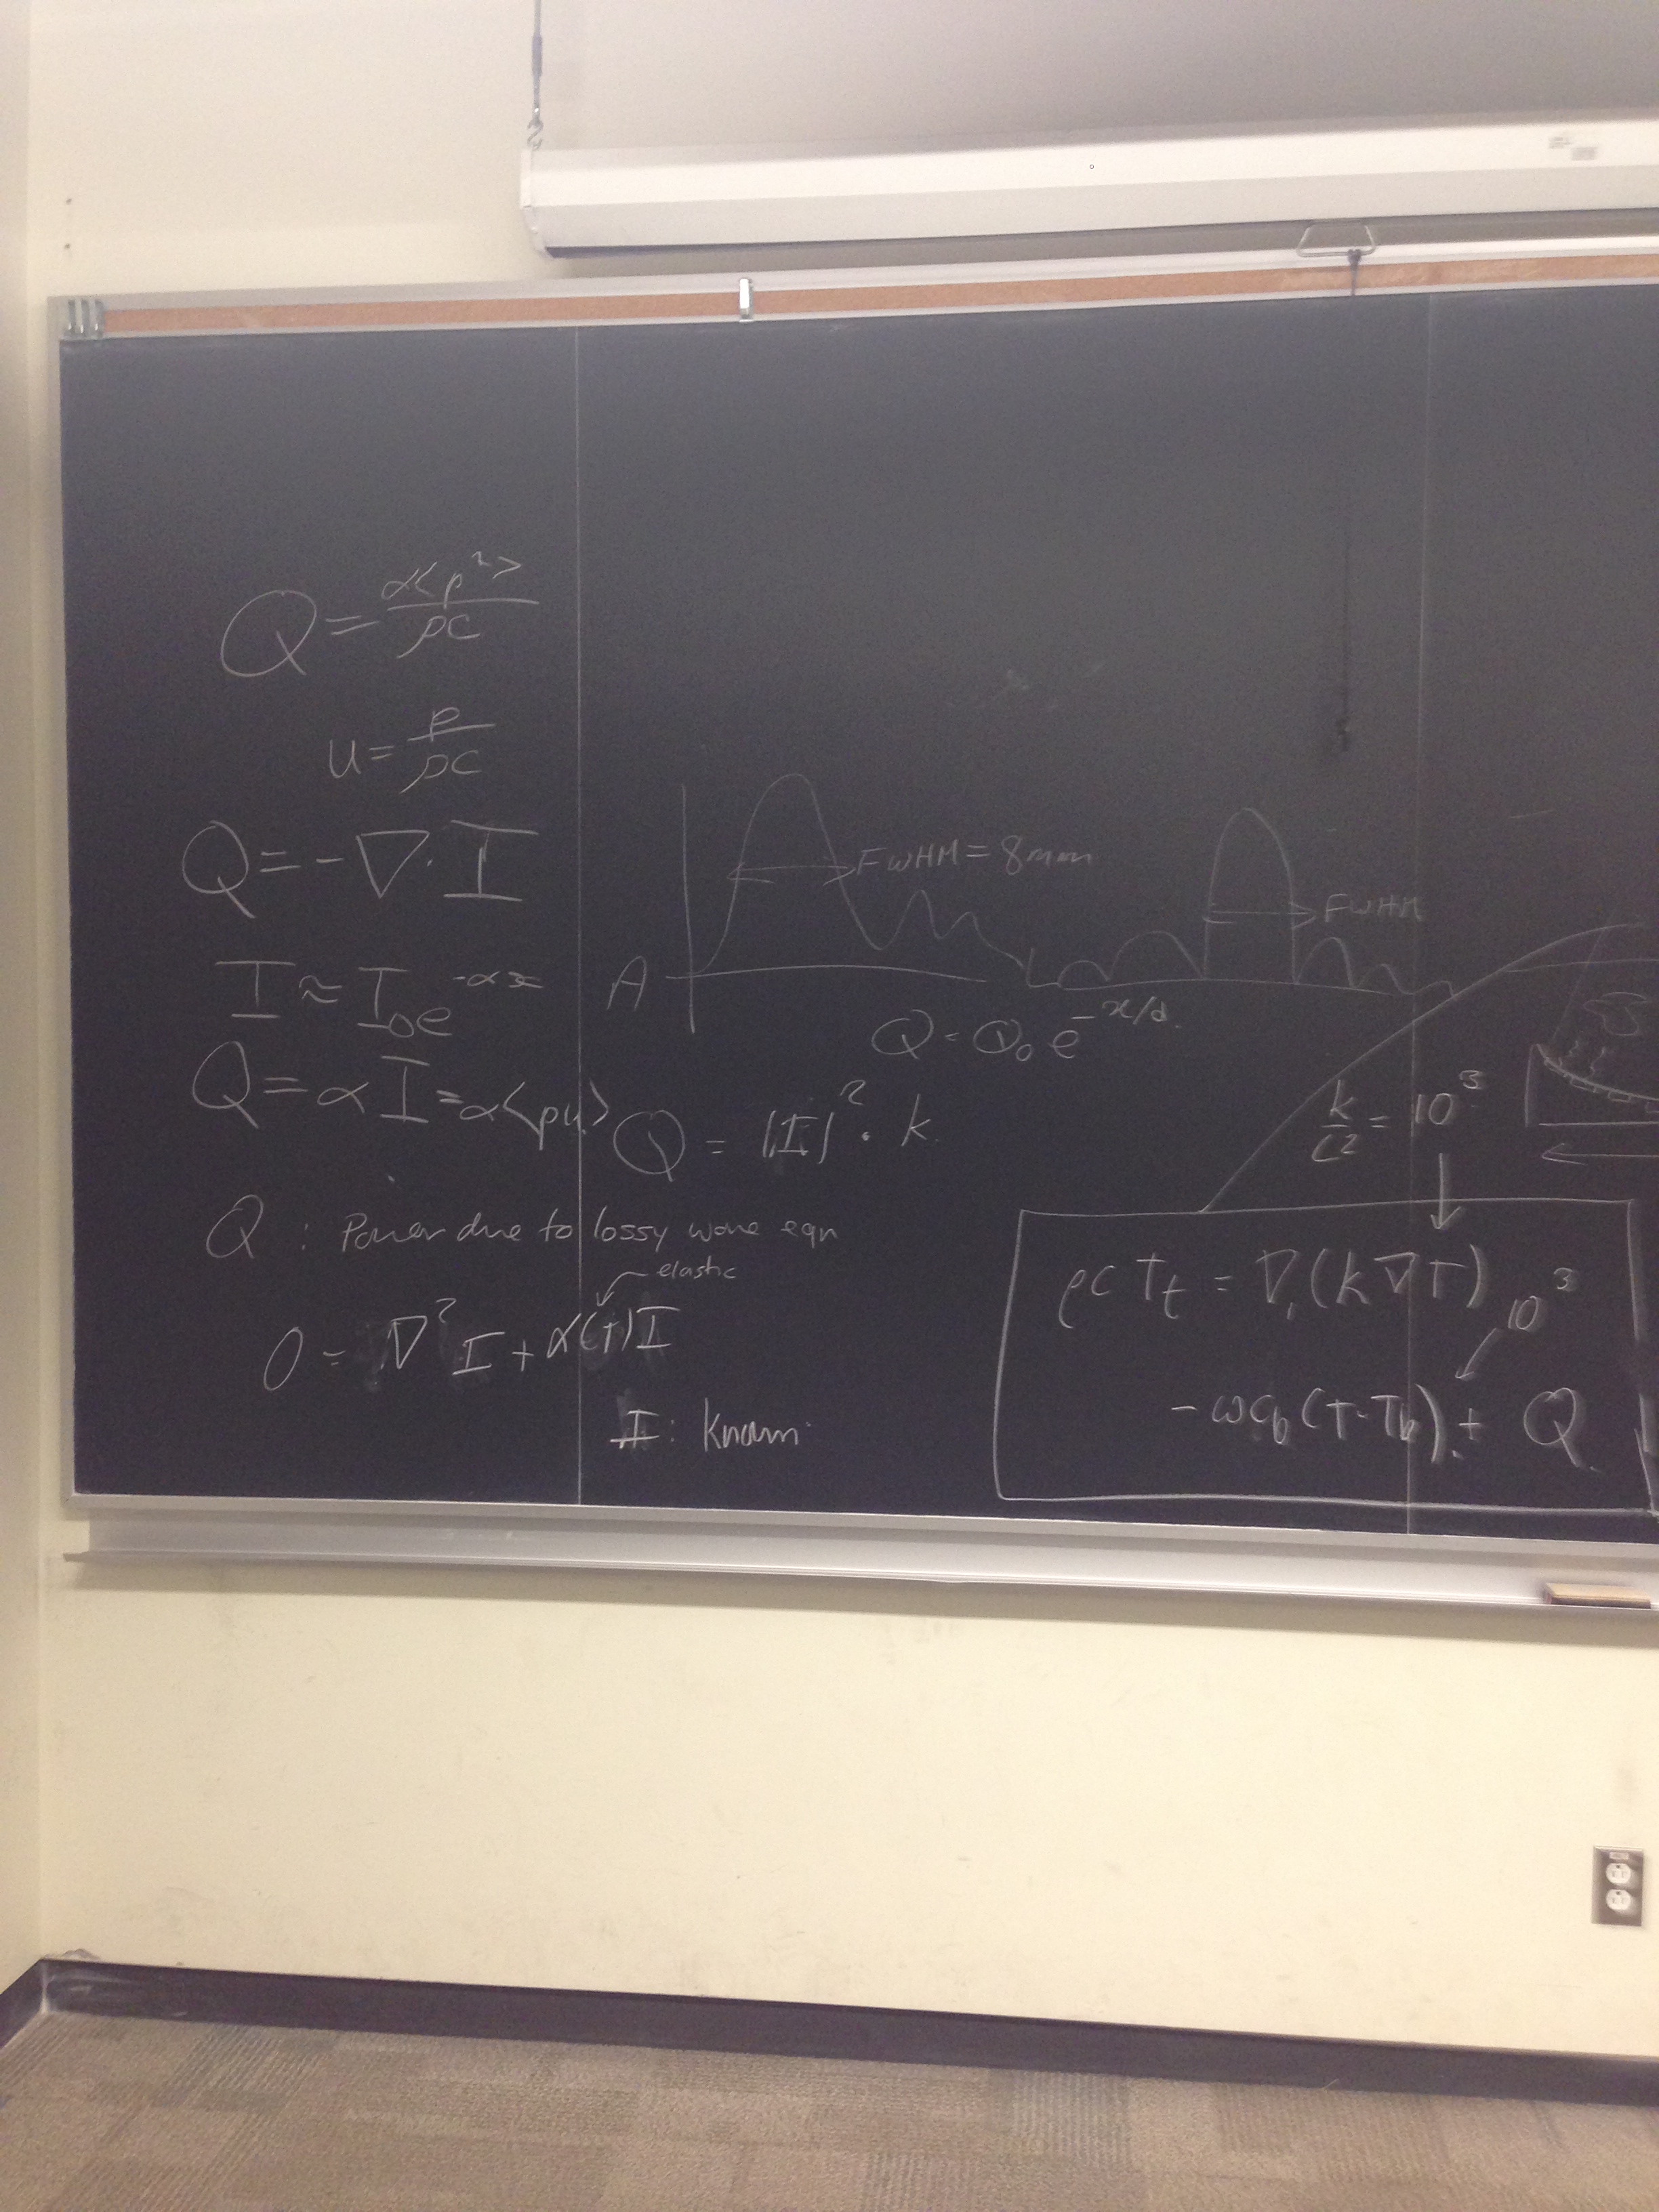 Q = α<p²>/ρc
u = p/ρc
Q = -∇·I
I ≈ I₀e^-αx
Q = αI = α<pu>
Q : Power due to lossy wave eqn
elastic
0 = ∇²I + α(T)I
I : Known
FWHM = 8mm
FWHM
A
Q = Q₀ e^-x/d
Q = |I|² · k
k/L² = 10³
ρc T_t = ∇·(k∇T)
10³
- ωc_b (T-T_b) + Q